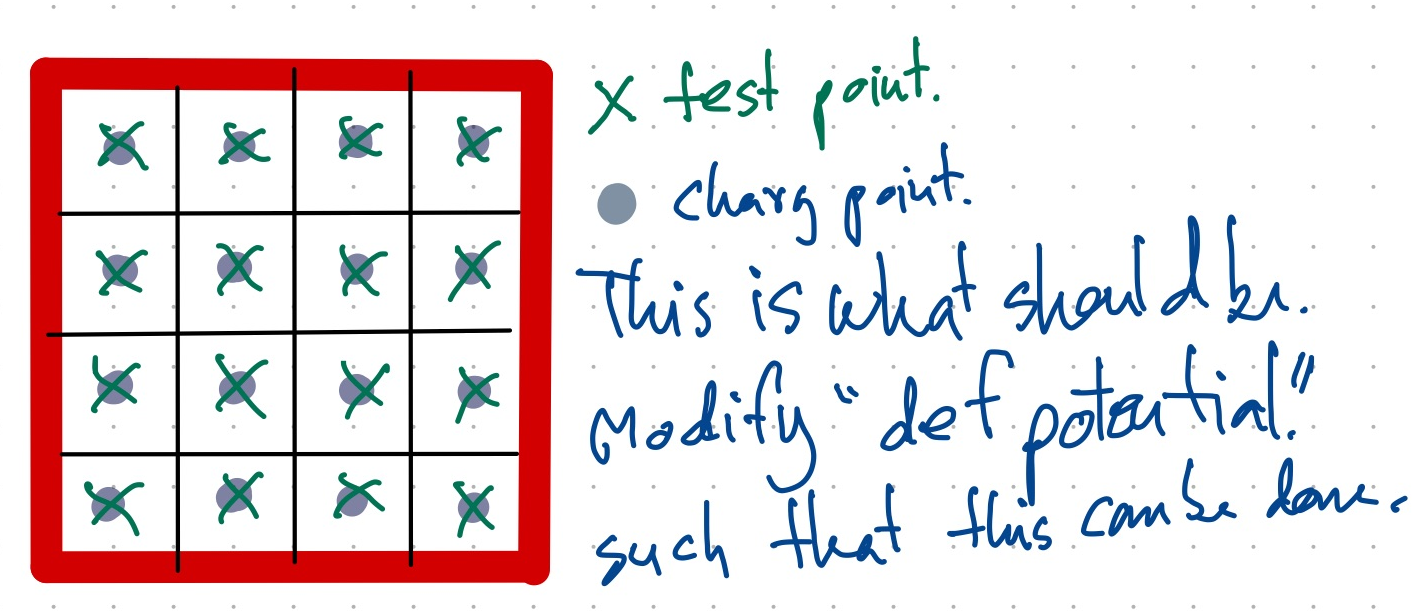 x test point.
charg point.
This is what should be.
Modify "def potential."
such that this can be done.